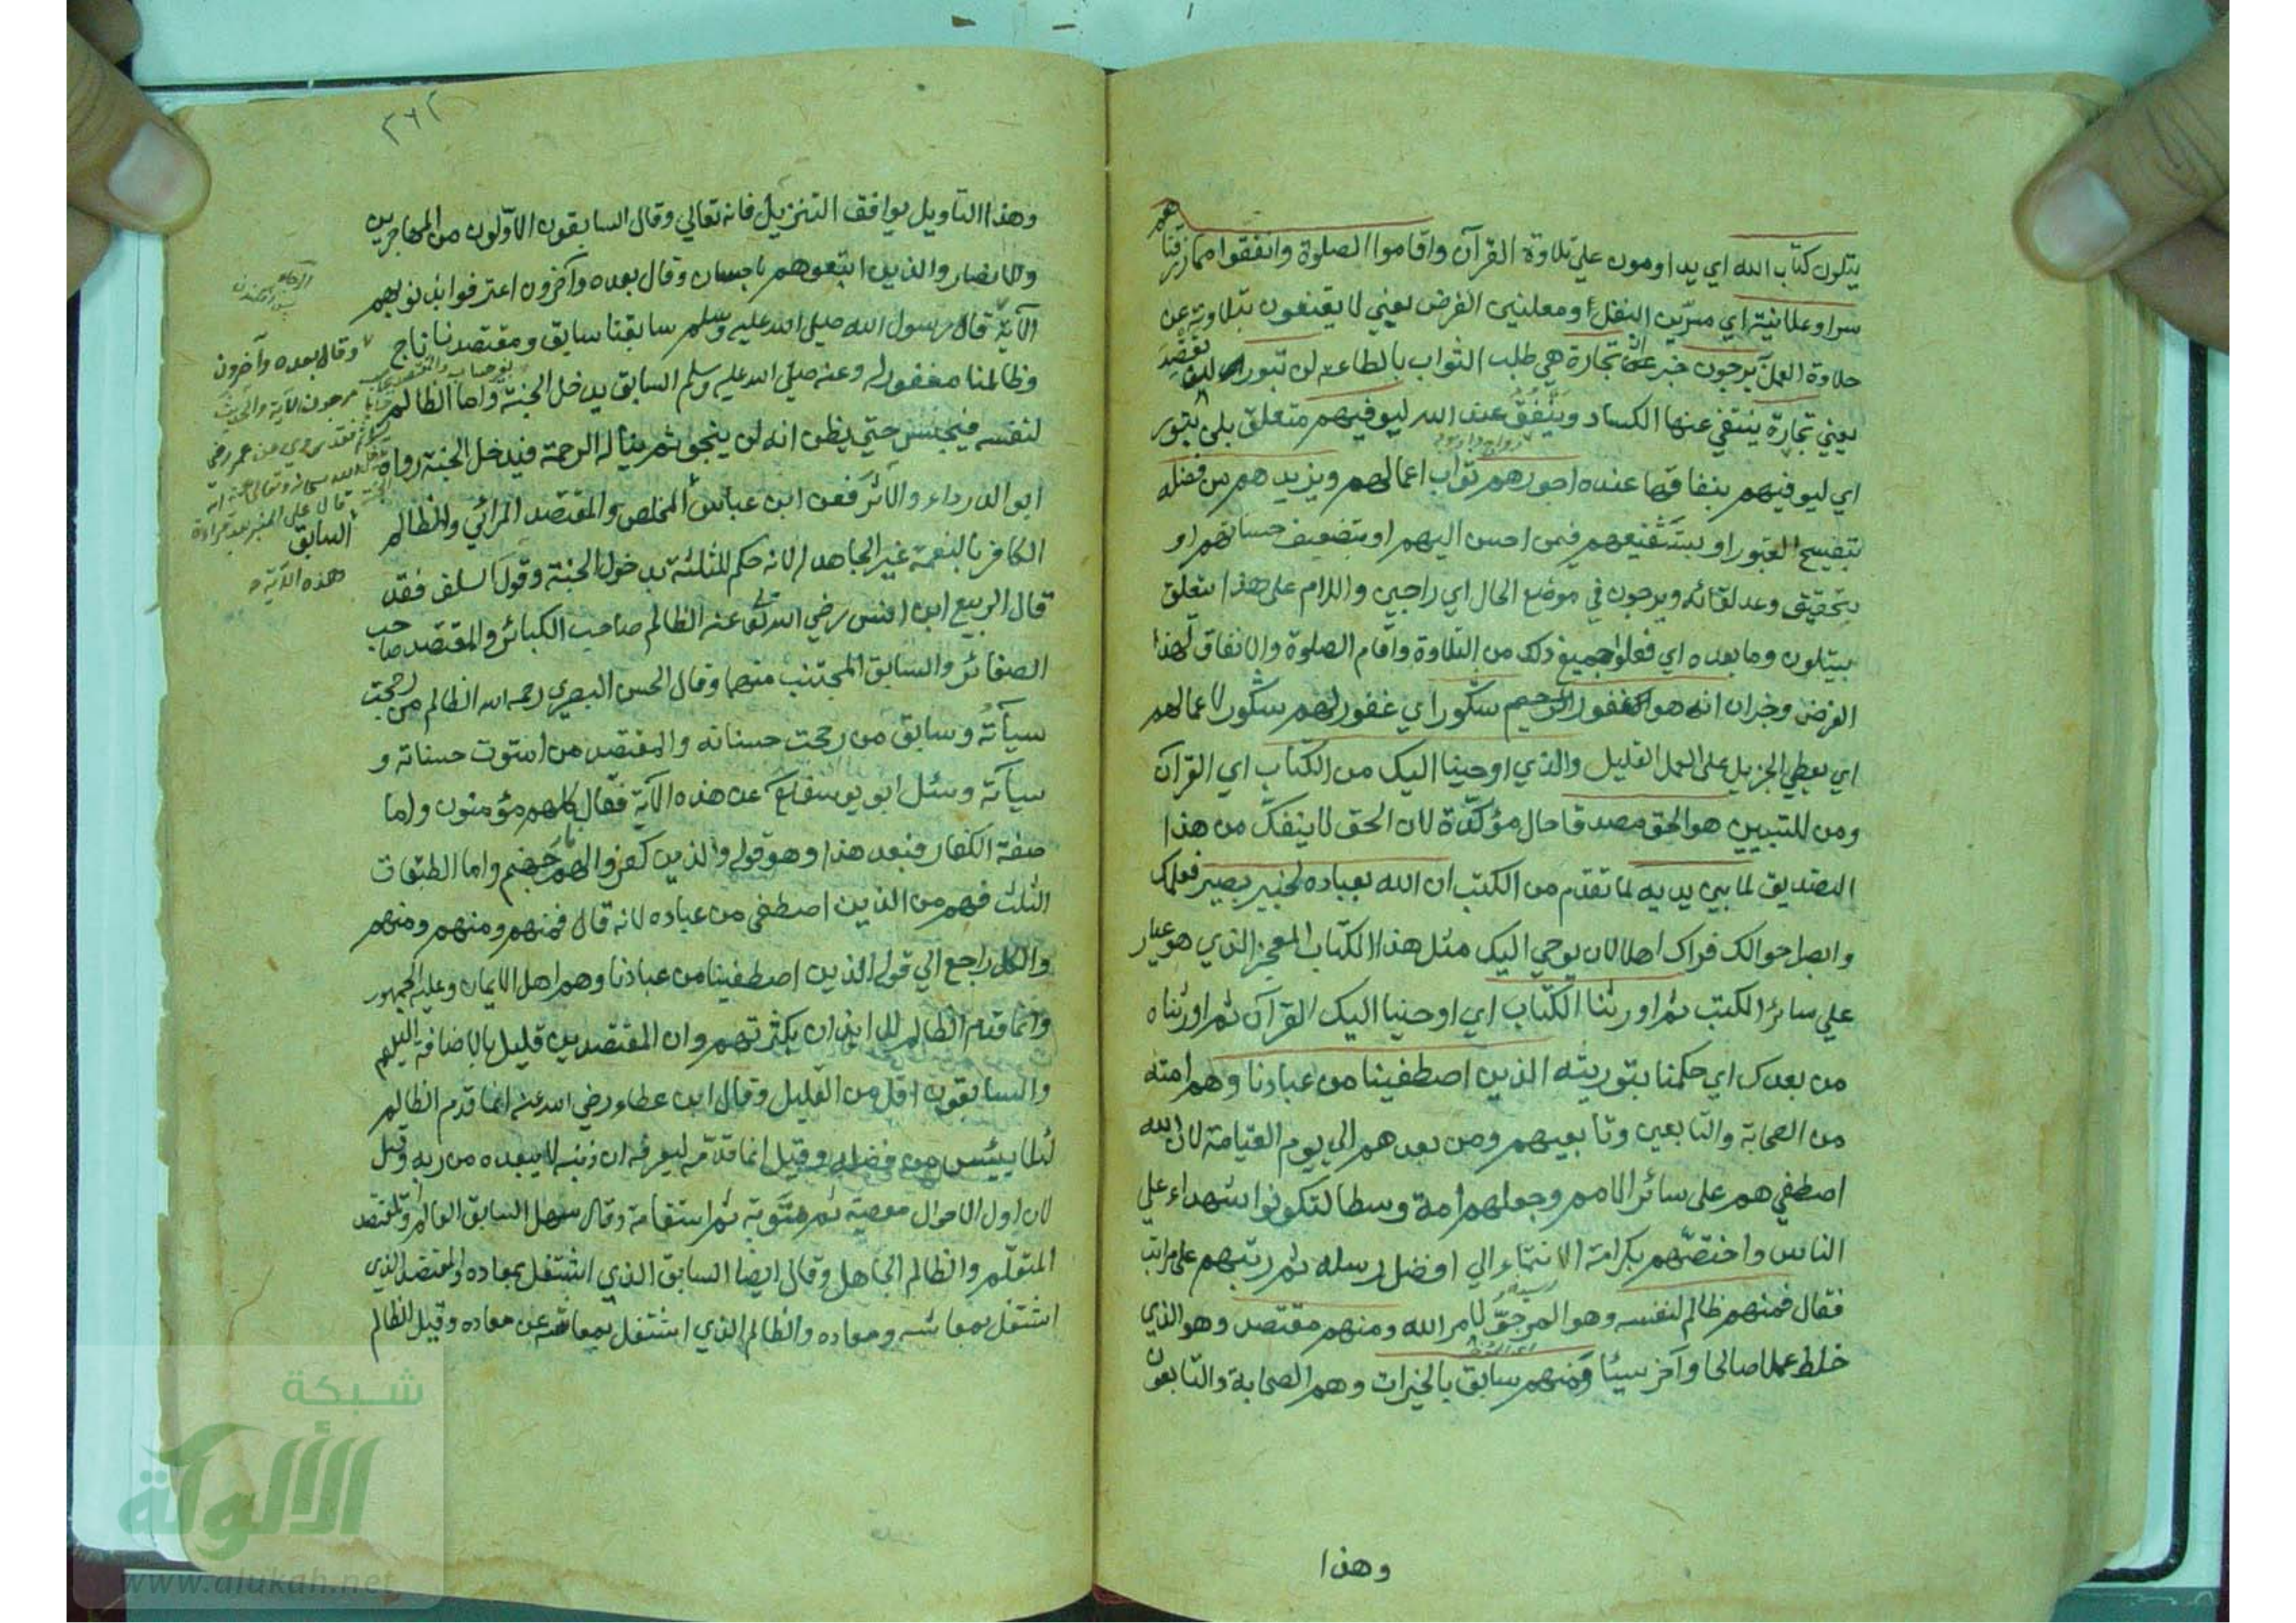 يتلون كتاب الله اي يداومون على تلاوة القرآن واقاموا الصلوة وانفقوا مما رزقناهم
سرا وعلانية اي مسرّين النفل او معلنين الفرض يعني لا يقنعون بتلاوته عن
حلاوة العمل يرجون خبر ان تجارة هي طلب الثواب بالطاعة لن تبور
يعني تجارة ينتفي عنها الكساد وينفق عند الله ليوفيهم متعلق بلن تبور
اي ليوفيهم بنفاقها عنده اجورهم ثواب اعمالهم ويزيدهم من فضله
بتفسيح القبور او بتشفيعهم فيمن احسن اليهم او بتضعيف حسناتهم او
بتحقيق وعد لقائه ويرجون في موضع الحال اي راجين واللام على هذا يتعلق
بيتلون وما بعده اي فعلوا جميع ذلك من التلاوة واقام الصلوة والانفاق لهذا
الغرض وخبر ان انه هو الغفور الرحيم شكور اي غفور لهم شكور لاعمالهم
اي يعطي الجزيل على العمل القليل والذي اوحينا اليك من الكتاب اي القرآن
ومن للتبيين هو الحق مصدقا حال مؤكدة لان الحق لا ينفك من هذا
التصديق لما بين يديه لما تقدم من الكتب ان الله بعباده لخبير بصير فعلمك
وابصر احوالك فراك اهلا لان يوحي اليك مثل هذا الكتاب المعجز الذي هو عيار
على سائر الكتب ثم اورثنا الكتاب اي اوحينا اليك القرآن ثم اورثناه
من بعدك اي حكمنا بتوريثه الذين اصطفينا من عبادنا وهم امته
من الصحابة والتابعين وتابعيهم ومن بعدهم الى يوم القيامة لان الله
اصطفيهم على سائر الامم وجعلهم امة وسطا لتكونوا شهداء على
الناس واختصهم بكرامة الانتماء الي افضل رسله ثم رتبهم على مراتب
فقال فمنهم ظالم لنفسه وهو المرجو لامر الله ومنهم مقتصد وهو الذي
خلط عملا صالحا وآخر سيئا ومنهم سابق بالخيرات وهم الصحابة والتابعون
وهذا
وهذا التاويل يوافق التنزيل فانه تعالي وقال السابقون الاولون من المهاجرين
والانصار والذين اتبعوهم باحسان وقال بعده وآخرون اعترفوا بذنوبهم
الآية قال رسول الله صلى الله عليه وسلم سابقنا سابق ومقتصدنا ناج
وظالمنا مغفور له وعنه صلى الله عليه وسلم السابق يدخل الجنة واما الظالم
لنفسه فيحبس حتي يظن انه لن ينجو ثم يناله الرحمة فيدخل الجنة رواه
ابو الدرداء والاثر فعن ابن عباس المخلص والمقتصد المرائي والظالم
الكافر بالنعمة غير الجاحد لانه حكم للثلثة بدخول الجنة وقول السلف فقد
قال الربيع ابن انس رضي الله تعالى عنه الظالم صاحب الكبائر والمقتصد صاحب
الصغائر والسابق المجتنب منهما وقال الحسن البصري رحمه الله الظالم من رجحت
سيآته وسابق من رجحت حسناته والمقتصد من استوت حسناته و
سيآته وسئل ابو يوسف عن هذه الآية فقال كلهم مؤمنون واما
صفة الكفار فبعد هذا وهو قوله والذين كفروا لهم نار جهنم واما الطبقات
الثلث فهم من الذين اصطفى من عباده لانه قال فمنهم ومنهم ومنهم
والكل راجع الي قوله الذين اصطفينا من عبادنا وهم اهل الايمان وعليه الجمهور
وانما قدم الظالم للايذان بكثرتهم وان المقتصدين قليل بالاضافة اليهم
والسابقون اقل من القليل وقال ابن عطاء رضي الله عنه انما قدم الظالم
لئلا ييئس من فضله وقيل انما قدمه ليعرفه ان ذنبه لا يبعده من ربه وقيل
لان اول الاحوال معصية ثم توبة ثم استقامة وقال سهل السابق العالم والمقتصد
المتعلم والظالم الجاهل وقال ايضا السابق الذي اشتغل بمعاده والمقتصد الذي
اشتغل بمعاشه ومعاده والظالم الذي اشتغل بمعاشه عن معاده وقيل الظالم
وقال بعده وآخرون
مرجون الآية والحديث
فقد روي عن عمر رضي
الله سبحانه وتعالى عنه انه
قال على المنبر بعد قراءة
هذه الآية
السابق
شبكة
الألوكة
www.alukah.net